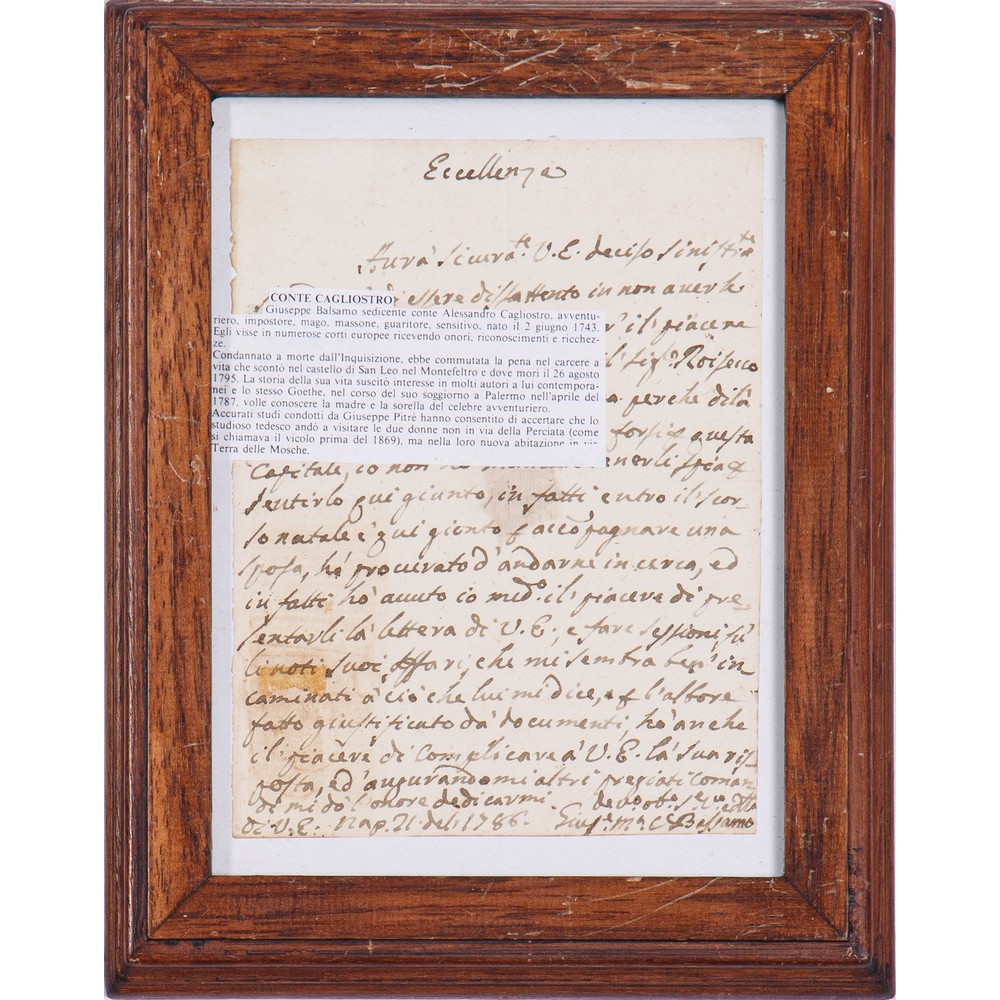 Eccellenza
Aurà sicura.te V.E. deciso sinist.te
di essere disattento in non averle
CONTE CAGLIOSTRO
Giuseppe Balsamo sedicente conte Alessandro Cagliostro, avventu-
riero, impostore, mago, massone, guaritore, sensitivo, nato il 2 giugno 1743.
Egli visse in numerose corti europee ricevendo onori, riconoscimenti e ricchez-
ze.
Condannato a morte dall'Inquisizione, ebbe commutata la pena nel carcere a
vita che scontò nel castello di San Leo nel Montefeltro e dove morì il 26 agosto
1795. La storia della sua vita suscitò interesse in molti autori a lui contempora-
nei e lo stesso Goethe, nel corso del suo soggiorno a Palermo nell'aprile del
1787, volle conoscere la madre e la sorella del celebre avventuriero.
Accurati studi condotti da Giuseppe Pitrè hanno consentito di accertare che lo
studioso tedesco andò a visitare le due donne non in via della Perciata (come
si chiamava il vicolo prima del 1869), ma nella loro nuova abitazione in via
Terra delle Mosche.
il piacere
perche di là
questa
Capitale, io non
sentirlo qui giunto, in fatti entro il scor-
so natale è qui gionto accopagnare una
sposa, hò procurato d'andarne in cerca, ed
in fatti hò avuto io med.o il piacere di pre-
sentarli là lettera di V.E., e fare sessioni sù
li noti suoi Affari, che mi sembra ben in
caminati à ciò che lui mi dice, e l'albore
fatto giustificato dà documenti, hò anche
il piacere di complicare à V.E. là sua ris-
posta, ed augurandomi altri pregiati coman
di mi dò l'onore dedicarmi.
di V.E. Nap. 21 del 1786. Bassamo